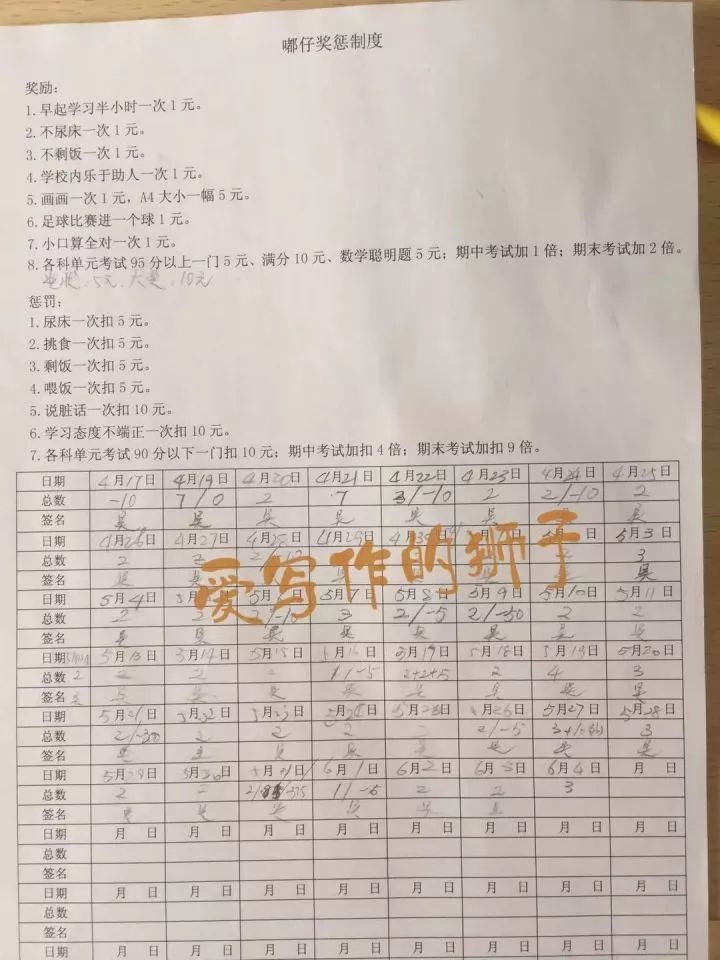 嘟仔奖惩制度
奖励：
1.早起学习半小时一次1元。
2.不尿床一次1元。
3.不剩饭一次1元。
4.学校内乐于助人一次1元。
5.画画一次1元，A4大小一幅5元。
6.足球比赛进一个球1元。
7.小口算全对一次1元。
8.各科单元考试95分以上一门5元、满分10元、数学聪明题5元；期中考试加1倍；期末考试加2倍。
5元、大奖、10元
惩罚：
1.尿床一次扣5元。
2.挑食一次扣5元。
3.剩饭一次扣5元。
4.喂饭一次扣5元。
5.说脏话一次扣10元。
6.学习态度不端正一次扣10元。
7.各科单元考试90分以下一门扣10元；期中考试加扣4倍；期末考试加扣9倍。
日期 4月17日 4月19日 4月20日 4月21日 4月22日 4月23日 4月24日 4月25日
总数 -10 7/0 2 7 3/-10 2 2/-10 2
签名 吴 吴 吴 吴 吴 吴 吴 吴
日期 4月26日 4月27日 4月28日 4月29日 4月30日 月 日 月 日 5月3日
总数 2 2 2 3
签名 吴 吴 吴 吴 吴 吴
爱写作的狮子
日期 5月4日 5月 日 5月6日 5月7日 5月8日 5月9日 5月10日 5月11日
总数 2 2 2/-10 3 2/-5 2/-50 2 2
签名 吴 吴 吴 吴 吴 吴 吴 吴
日期 5月13日 5月14日 5月15日 月16日 5月17日 5月18日 5月19日 5月20日
总数 2 2 2 1/-5 2+2+5 2 4 3
签名 吴 吴 吴 吴 吴 吴 吴 吴
日期 5月21日 5月22日 5月23日 5月 日 5月25日 月26日 5月27日 5月28日
总数 2/-30 2 2 2 2 2/-5 3
签名 吴 吴 吴 吴 吴 吴 吴 吴
日期 5月29日 5月30日 5月31日 6月1日 6月2日 6月3日 6月4日 月 日
总数 2 2 1/-5 2 2 3
签名 吴 吴 吴 吴 吴 吴
日期 月 日 月 日 月 日 月 日 月 日 月 日 月 日 月 日
总数
签名
日期 月 日 月 日 月 日 月 日 月 日 月 日 月 日 月 日
总数
签名
日期 月 日 月 日 月 日 月 日 月 日 月 日 月 日 月 日